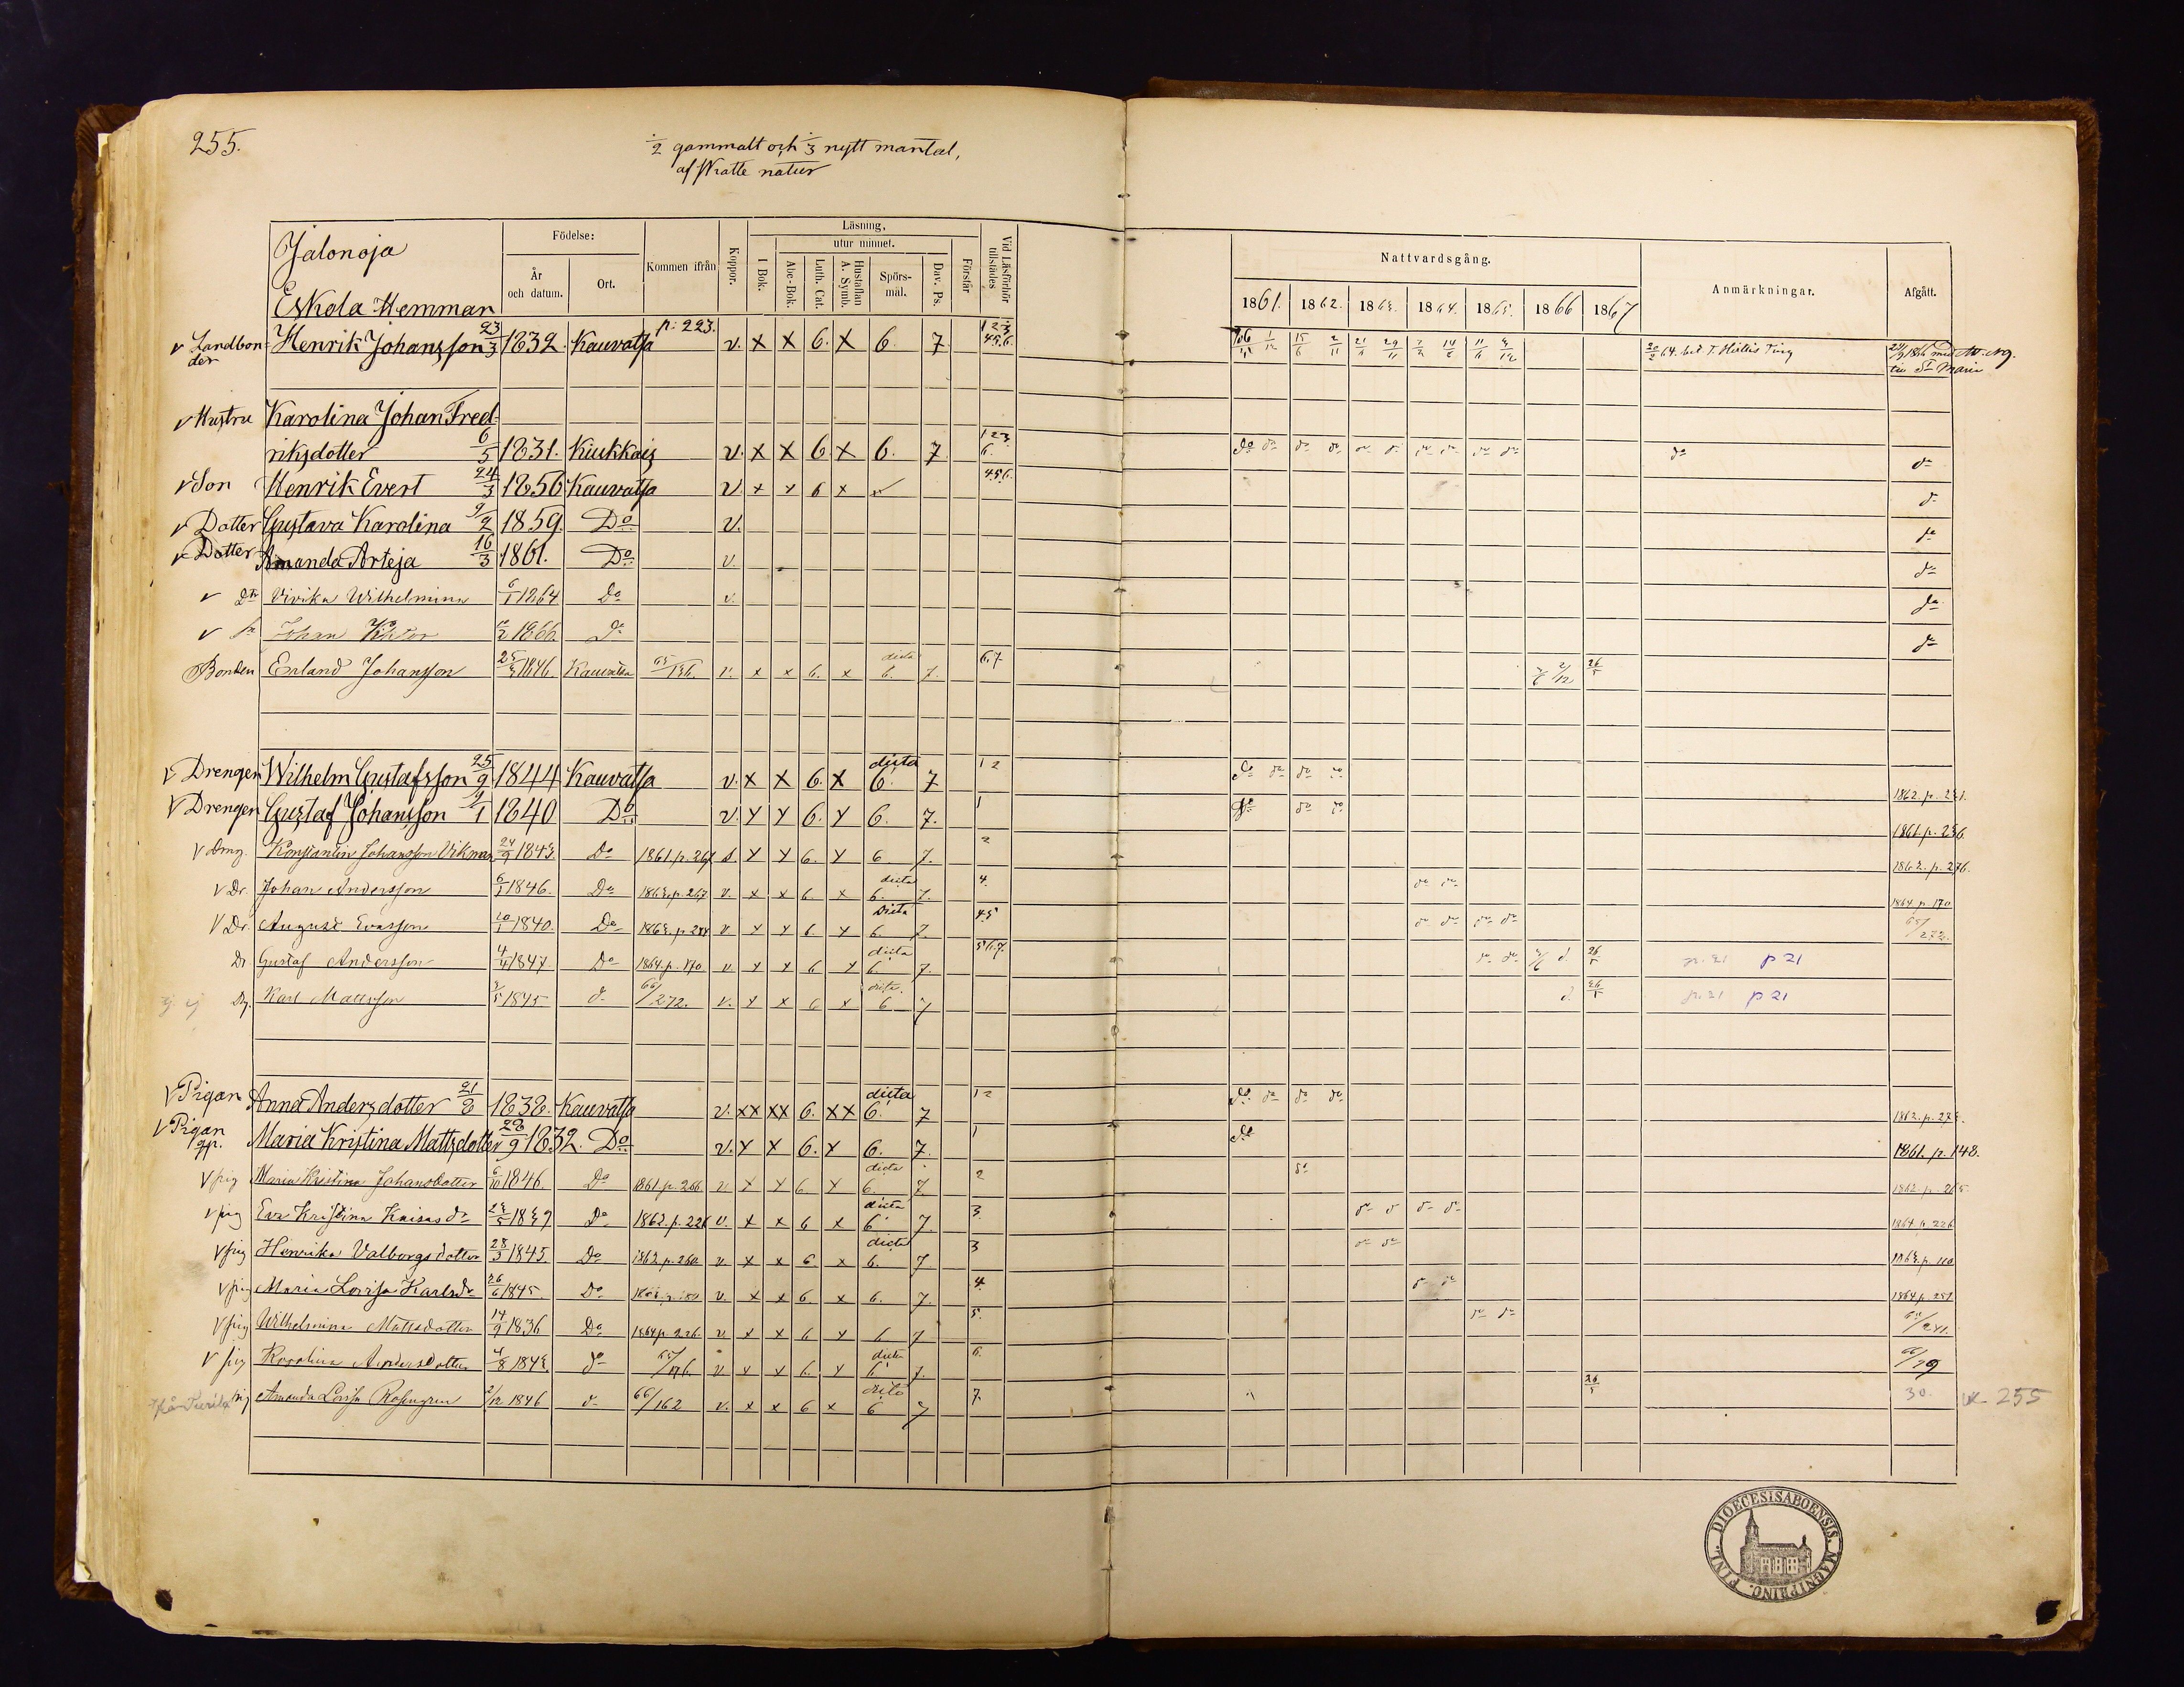 255.
1/2 gammalt och 1/3 nytt mantal,
af Skatte natur
Jalonoja
Eskola Hemman
Födelse:
År och datum.
Ort.
Kommen ifrån
Koppor.
Läsning,
I Bok.
utur minnet.
Abc-Bok.
Luth. Cat.
Hustaflan A. Symb.
Spörsmål.
Dav. Ps.
Förstår
Vid Läsförhör tillstädes
Nattvardsgång.
1861. 1862. 1863. 1864. 1865. 1866 1867
Anmärkningar.
Afgått.
v Landbonden Henrik Johansson 23/3 1832. Kauvatsa p: 223. v. x x 6. x 6. 7 1 2 3 4 5 6.
v Hustru Karolina Johan Fred-
riksdotter 6/5 1831. Kiukkais v. x x 6 x 6. 7 1 2 3 6. Do do do do do do do do do do do do
v Son Henrik Evert 24/3 1856 Kauvatsa v. x x 6 x 4.5.6. do
v Dotter Gustava Karolina 9/2 1859. Do v. do
v Dotter Amanda Arteja 16/3 1861. Do v. do
v Dr Vivika Wilhelmina 6/1 1864 Do v. do
v Johan Viktor 1866. Do do
Bonden Erland Johansson 25/3 1846. Kauvatsa 65/136. v. x x 6. x dicta 6. 7. 6.7 26/5
v Drengen Wilhelm Gustafsson 25/9 1844 Kauvatsa v. x x 6. x dicta 6. 7 1 2 Do do do do 1862. p. 221.
v Drengen Gustaf Johansson 9/1 1840 Do v. x x 6. x 6. 7. 1 Do do do 1861. p. 236
v dreng. Konstantin Johansson Vikman 24/9 1843. Do 1861. p. 267 x x 6. x 6 7. 2 1862. p. 276.
v Dr. Johan Andersson 6/1 1846. Do 1863. p. 267. v. x x 6 x dicta 6. 7. 4. do do 1864 p. 170
v Dr. August 1840. Do 1863. p. v x x 6. x Dicta 6. 7. 4.5 do do do do 65/272.
Dr Gustaf Andersson 4/4 1847. Do 1864. p. 170 v x x 6 x dicta 6. 7. 5.6.7. do do 26/5 p. 21 p 21
Dg. Karl Mattsson 1845 d. 66/272. v. x x 6 x dicta. 6 7 d. 26/5 p. 21 p 21
v Pigan Anna Andersdotter 21/8 1838. Kauvatsa v. xx xx 6. xx dicta 6. 7 1 2 Do do do do
v Pigan gp. Maria Kristina Mattsdotter 28/9 1832. Do v. x x 6. x 6. 7. 1 Do 1861. p. 148.
v pig Maria Kristina Johansdotter 6/10 1846. Do 1861. p. 266 v x x 6 x dicta 6. 7. 2 do 1862. p. 265.
v pig Eva Kristina Do 1862. p. 226 v. x x 6 x dicta 6. 7. 3. 1864. p. 226
v pig Henrika Valborgsdotter 28/3 1845. Do 1862. p. 260. v. x x 6 x dicta 6. 7 3 do do 1863. p. 110
v pig Maria Lovisa Karlsdr 26/6 1845 Do v. x x 6. x 6. 7. 4. do do 1864 p. 251
v pig Wilhelmina Mattsdotter 14/9 1836 Do 1864 p. 226. v. x x 6 x 6 7 5. do do
v pig Karolina Andersdotter 4/8 1843. do v x x 6. x dicta 6. 7. 6. 66/79
pig Amanda Lovisa Rosengren 2/12 1846 d. 66/162 v. x x 6 x dito 6 7 7. 26/5 30. 255
FINL. DIOECESIS ABOENSIS. MAGNI PRINC.